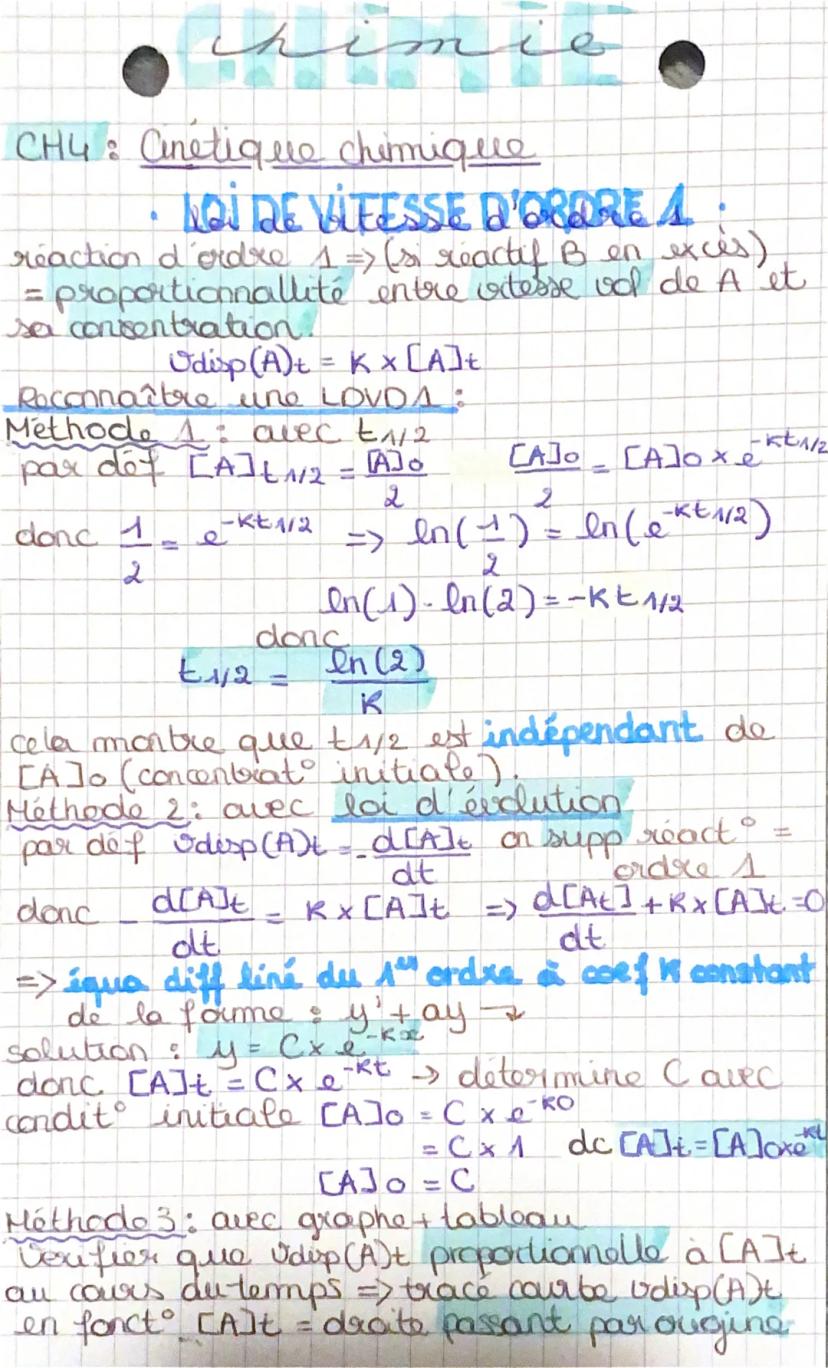 chimie
CH4 : Cinétique chimique
• LOI DE VITESSE D'ORDRE 1 •
réaction d'ordre 1 => (si réactif B en excès)
= proportionnallité entre vitesse vol de A et
sa consentration.
Vdisp(A)t = K × [A]t
Reconnaître une LDVO1 :
Méthode 1 : avec t1/2
par déf [A]t1/2 = [A]0/2 [A]0/2 = [A]0 × e^-Kt1/2
donc 1/2 = e^-Kt1/2 => ln(1/2) = ln(e^-Kt1/2)
ln(1) - ln(2) = -Kt1/2
donc
t1/2 = ln(2)/K
cela montre que t1/2 est indépendant de
[A]0 (concentrat° initiale).
Méthode 2 : avec loi d'évolution
par déf Vdisp(A)t = - d[A]t/dt on supp réact° =
ordre 1
donc - d[A]t/dt = K × [A]t => d[At]/dt + K × [A]t = 0
=> équa diff liné du 1er ordre à coef K constant
de la forme : y' + ay →
solution : y = C × e^-Kx
donc [A]t = C × e^-Kt → détermine C avec
condit° initiale [A]0 = C × e^-K0
= C × 1 dc [A]t = [A]0 × e^-Kt
[A]0 = C
Méthode 3 : avec graphe + tableau
Vérifier que Vdisp(A)t proportionnelle à [A]t
au cours du temps => tracé courbe Vdisp(A)t
en fonct° [A]t = droite passant par origine